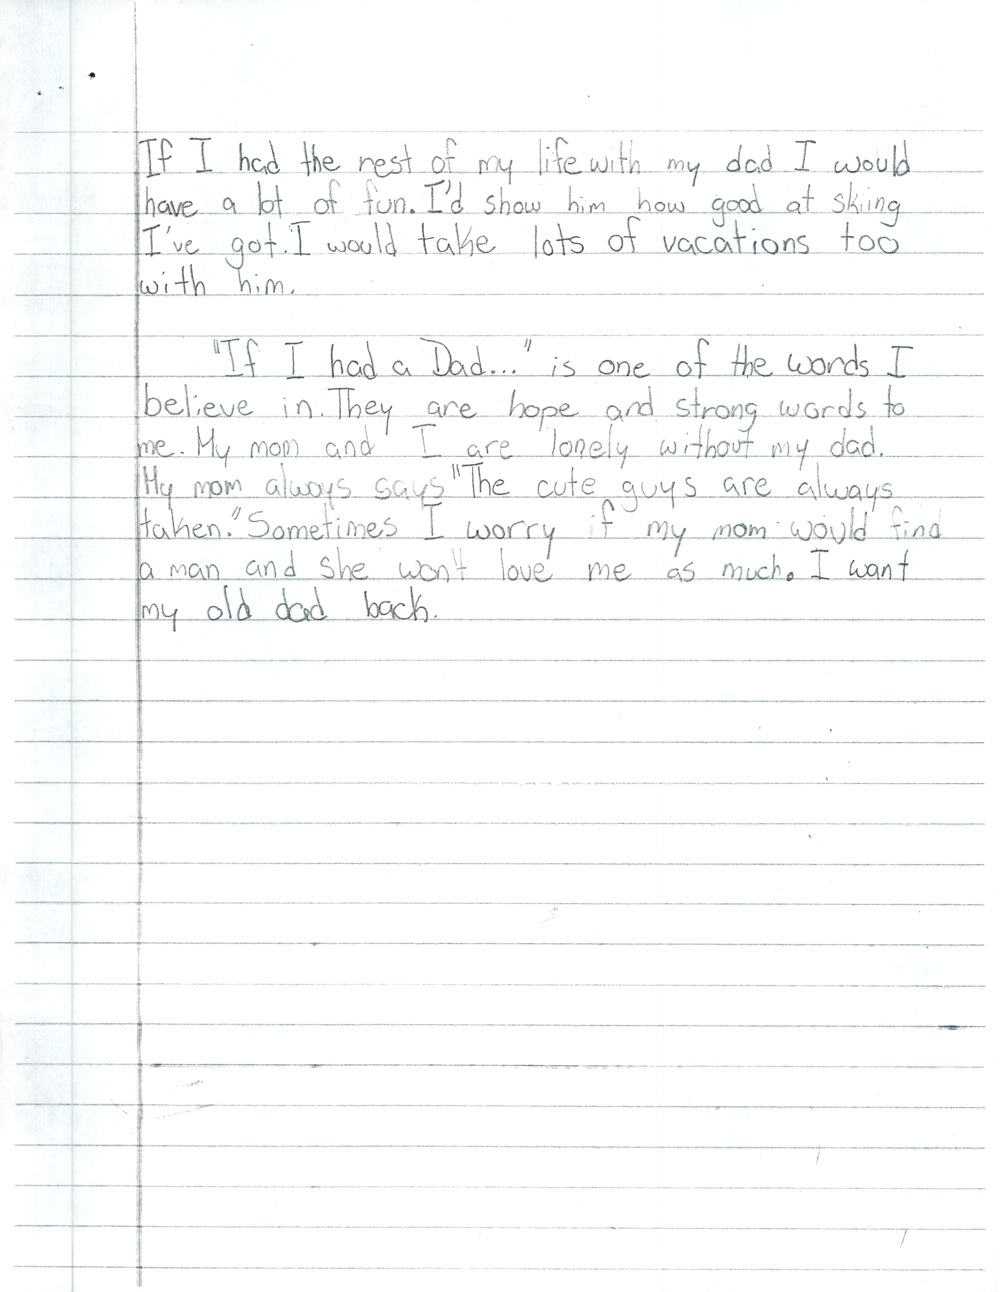 If I had the rest of my life with my dad I would
have a lot of fun. I'd show him how good at skiing
I've got. I would take lots of vacations too
with him.
"If I had a Dad..." is one of the words I
believe in. They are hope and strong words to
me. My mom and I are lonely without my dad.
My mom always says "The cute guys are always
taken." Sometimes I worry if my mom would find
a man and she won't love me as much. I want
my old dad back.